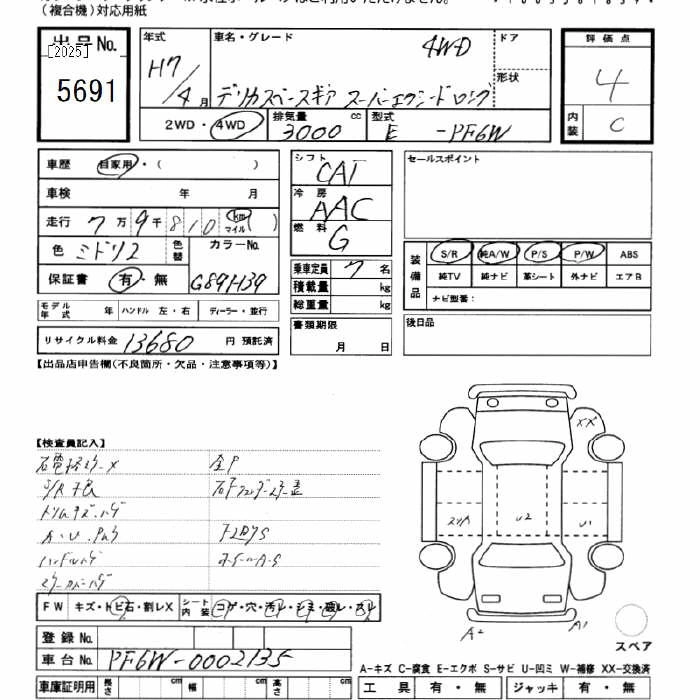 (複合機)対応用紙
出品No.
[2025]
5691
年式
H7/4月
車名・グレード
4WD
デリカスペースギア スーパーエクシードロング
ドア
形状
2WD・4WD
排気量 3000 cc
型式 E -PF6W
評価点
4
内装 C
車歴 自家用・( )
車検 年 月
走行 7万9千810 km マイル( )
色 ミドリ2
色替
カラーNo.
G89H39
保証書 有・無
モデル年式 年 ハンドル 左・右 ディーラー・並行
リサイクル料金 13680 円 預託済
シフト CAT
冷房 AAC
燃料 G
乗車定員 7 名
積載量 kg
総重量 kg
書類期限
月 日
セールスポイント
装備品
S/R 純A/W P/S P/W ABS
純TV 純ナビ 革シート 外ナビ エアB
ナビ型番:
後日品
【出品店申告欄(不良箇所・欠品・注意事項等)】
【検査員記入】
XX
U2
U1
A2
A1
スペア
FW キズ・トビ石・割レX
シート内装 コゲ・穴・汚レ・シミ・破レ・スレ
登録No.
車台No. PF6W-0002135
A-キズ C-腐食 E-エクボ S-サビ U-凹ミ W-補修 XX-交換済
車庫証明用 長さ cm 幅 cm 高さ cm
工具 有・無 ジャッキ 有・無